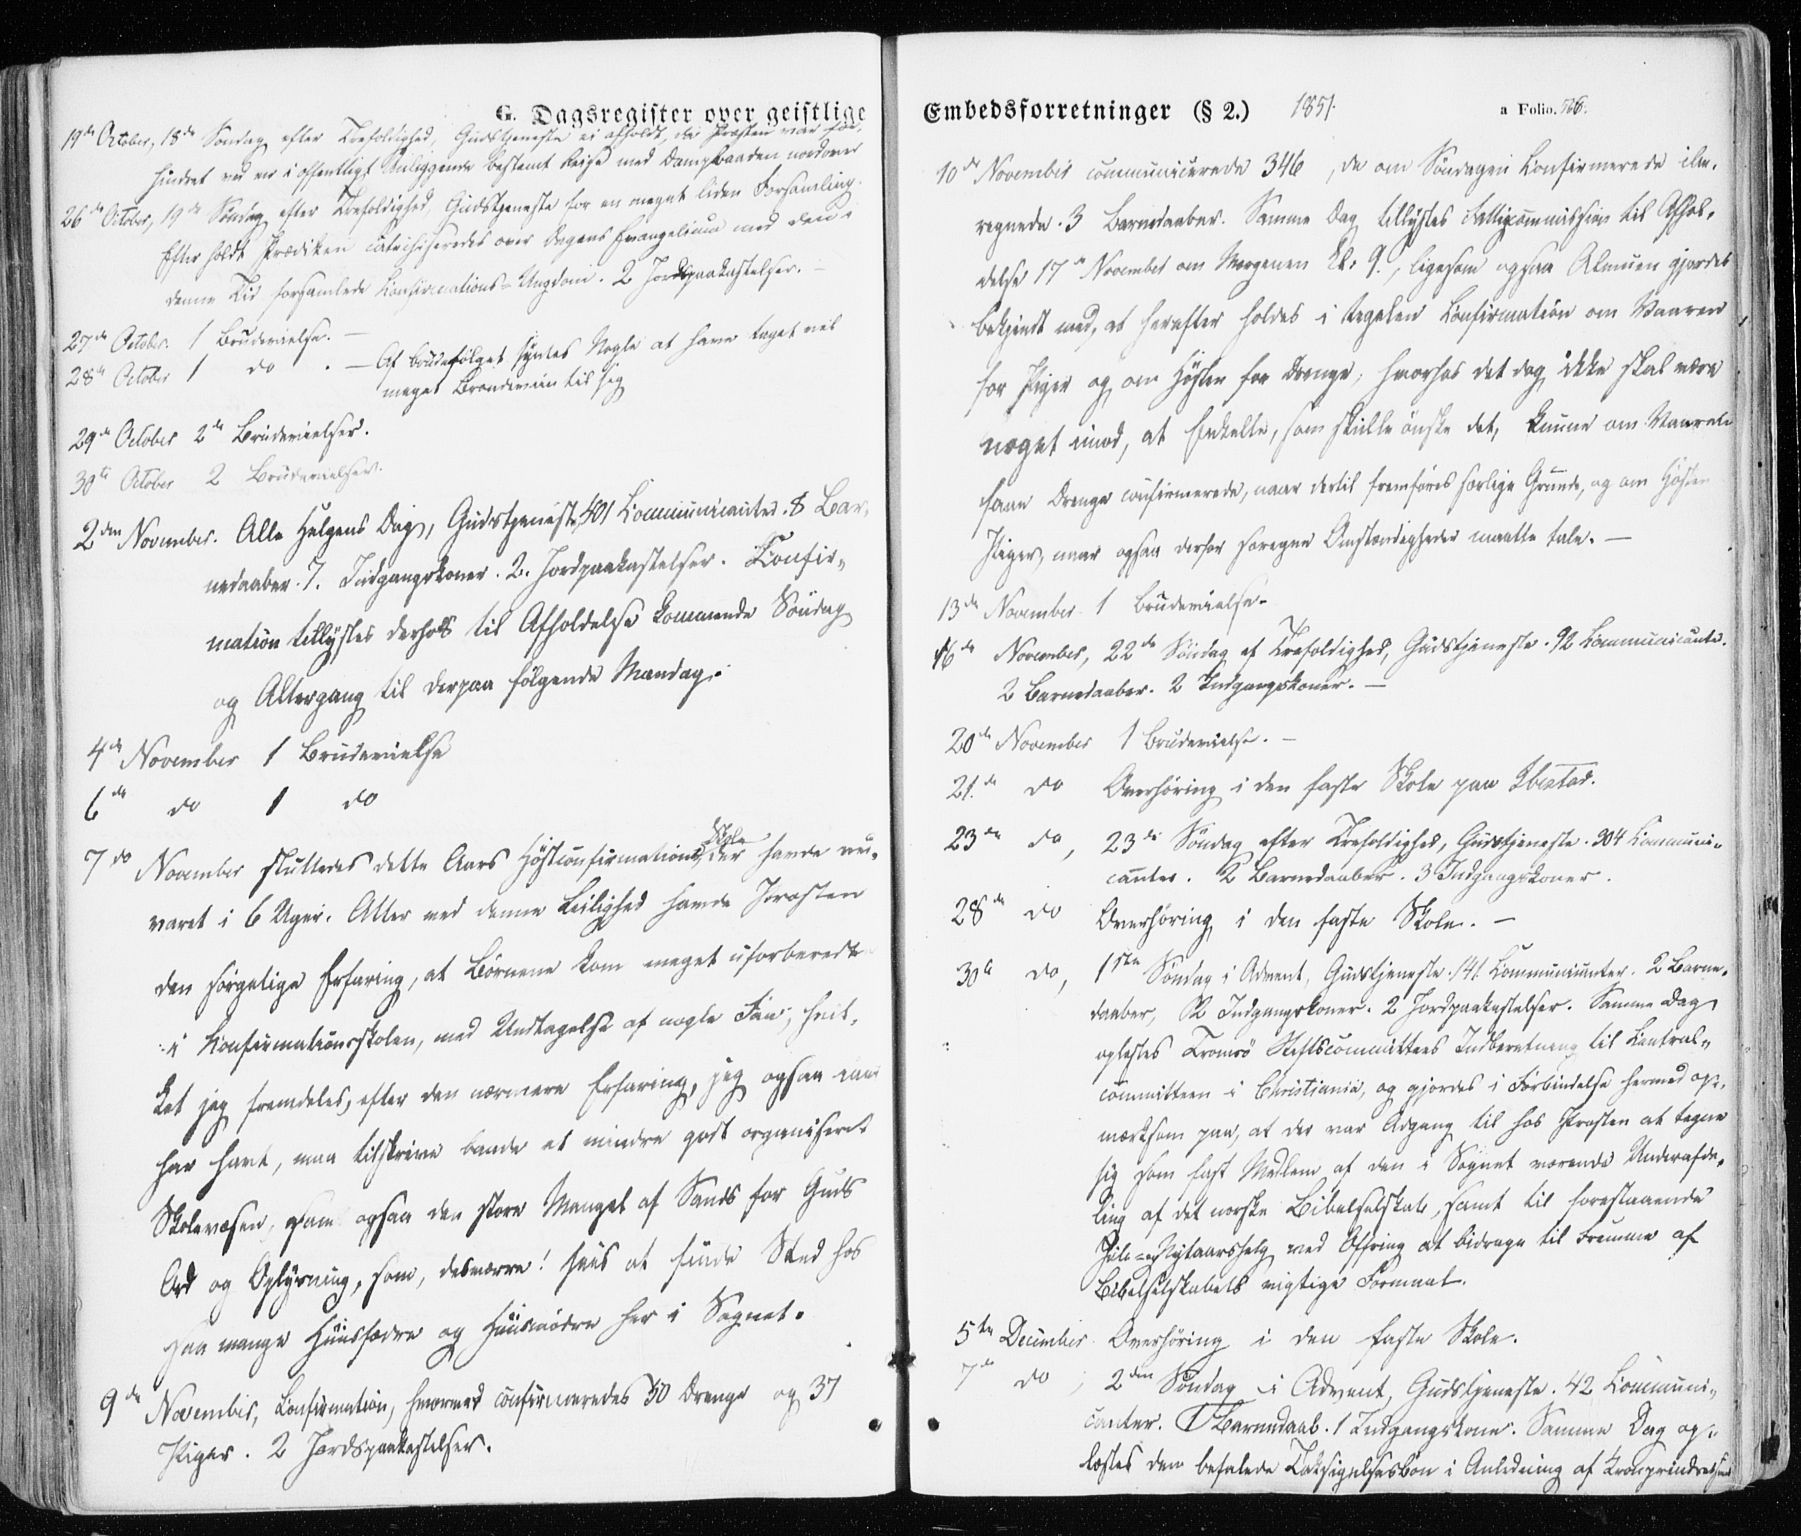 G. Dagsregister over geistlige
19de October, 18de Søndag efter Trefoldighed, Gudstjeneste ei afholdt, da Præsten var for
hindret ved en i offentligt Anliggende bestemt Reise med Dampbaaden nordover
26de October, 19de Søndag efter Trefoldighed, Gudstjeneste for en meget liden Forsamling.
Efter holdt Prædiken catechiseredes over Dagens Evangelium med den i
denne Tid forsamlede Konfirmations-Ungdom. 2 Jordspaakastelser. —
27de October. 1 Brudevielse. —
28de October 1 do . — Af brudefølget syntes Nogle at have taget vel
meget Brændeviin til sig
29de October 2de Brudevielser.
30te October 2 Brudevielser.
2den November. Alle Helgens Dag, Gudstjeneste, 401 Communicanter. 8 Bar-
nedaaber. 7. Indgangskoner. 2. Jordpaakastelser. Confir-
mation tillystes derhos til Afholdelse kommende Søndag
og Altergang til derpaa følgende Mandag.
4de November 1 Brudevielse
6de do 1 do
7de November sluttedes dette Aars Høstconfirmations Skole der havde nu
varet i 6 Uger. Atter ved denne Leilighed havde Præsten
den sørgelige Erfaring, at Børnene kom meget uforberedte
i Konfirmationsskolen, med Undtagelse af nogle Faa, hvil-
ket jeg fremdeles, efter den nærmere Erfaring, jeg ogsaa nu
har havt, maa tilskrive baade et mindre godt organiseret
Skolevæsen, som ogsaa den store Mangel af Sands for Guds
Ord og Oplysning, som, desværre! sees at finde Sted hos
saa mange Huusfædre og Huusmødre her i Sognet.
9de November, Confirmation, hvorved confirmeredes 30 Drenge og 37
Piger. 2 Jordspaakastelser.
Embedsforretninger (§ 2.) 1851. a Folio. 526.
10de November communicerede 346, de om Søndagen Confirmerede ibe-
regnede. 3 Barnedaaber. Samme Dag tillystes Fattigcommission til Afhol-
delse 17de November om Morgenen Kl. 9, ligesom ogsaa Almuen gjordes
bekjendt med, at herefter holdes i Regelen Confirmation om Vaaren
for Piger og om Høsten for Drenge, hvorhos det dog ikke skal være
noget imod, at Enkelte, som skulle ønske det, kunne om Vaaren
faae Drenge confirmerede, naar dertil fremføres særlige Grunde, og om Høsten
Piger, naar ogsaa derfor særegne Omstændigheder maatte tale. —
13de November 1 Brudevielse.
16de November, 22de Søndag ef Trefoldighed, Gudstjeneste. 92 Communicanter.
2 Barnedaaber. 2 Indgangskoner. —
20de November 1 Brudevielse. —
21de do Overhøring i den faste Skole paa Ibestad.
23de do, 23de Søndag efter Trefoldighed, Gudstjeneste. 304 Communi-
canter. 2 Barnedaaber. 3 Indgangskoner.
28de do Overhøring i den faste Skole. —
30te do, 1ste Søndag i Advent, Gudstjeneste. 141 Communicanter. 2 Barne-
daaber, 2 Indgangskoner. 2 Jordpaakastelser. Samme Dag
oplæstes Tromsö Stiftscommittees Indberetning til Central-
committeen i Christiania, og gjordes i Forbindelse hermed op-
mærksom paa, at der var Adgang til hos Præsten at tegne
sig som fast Medlem af den i Sognet værende Underafde-
ling af det norske Bibelselskab, samt til forestaaende
Jule- og Nytaarshelg ved Offring at bidrage til Fremme af
Bibelselskabets vigtige Formaal.
5te December Overhøring i den faste Skole.
7de do, 2den Søndag i Advent, Gudstjeneste. 42 Communi-
canter. 1 Barnedaab. 1 Indgangskone. Samme Dag op-
læstes den befalede Taksigelsesbøn i Anledning af Kronprindsessens